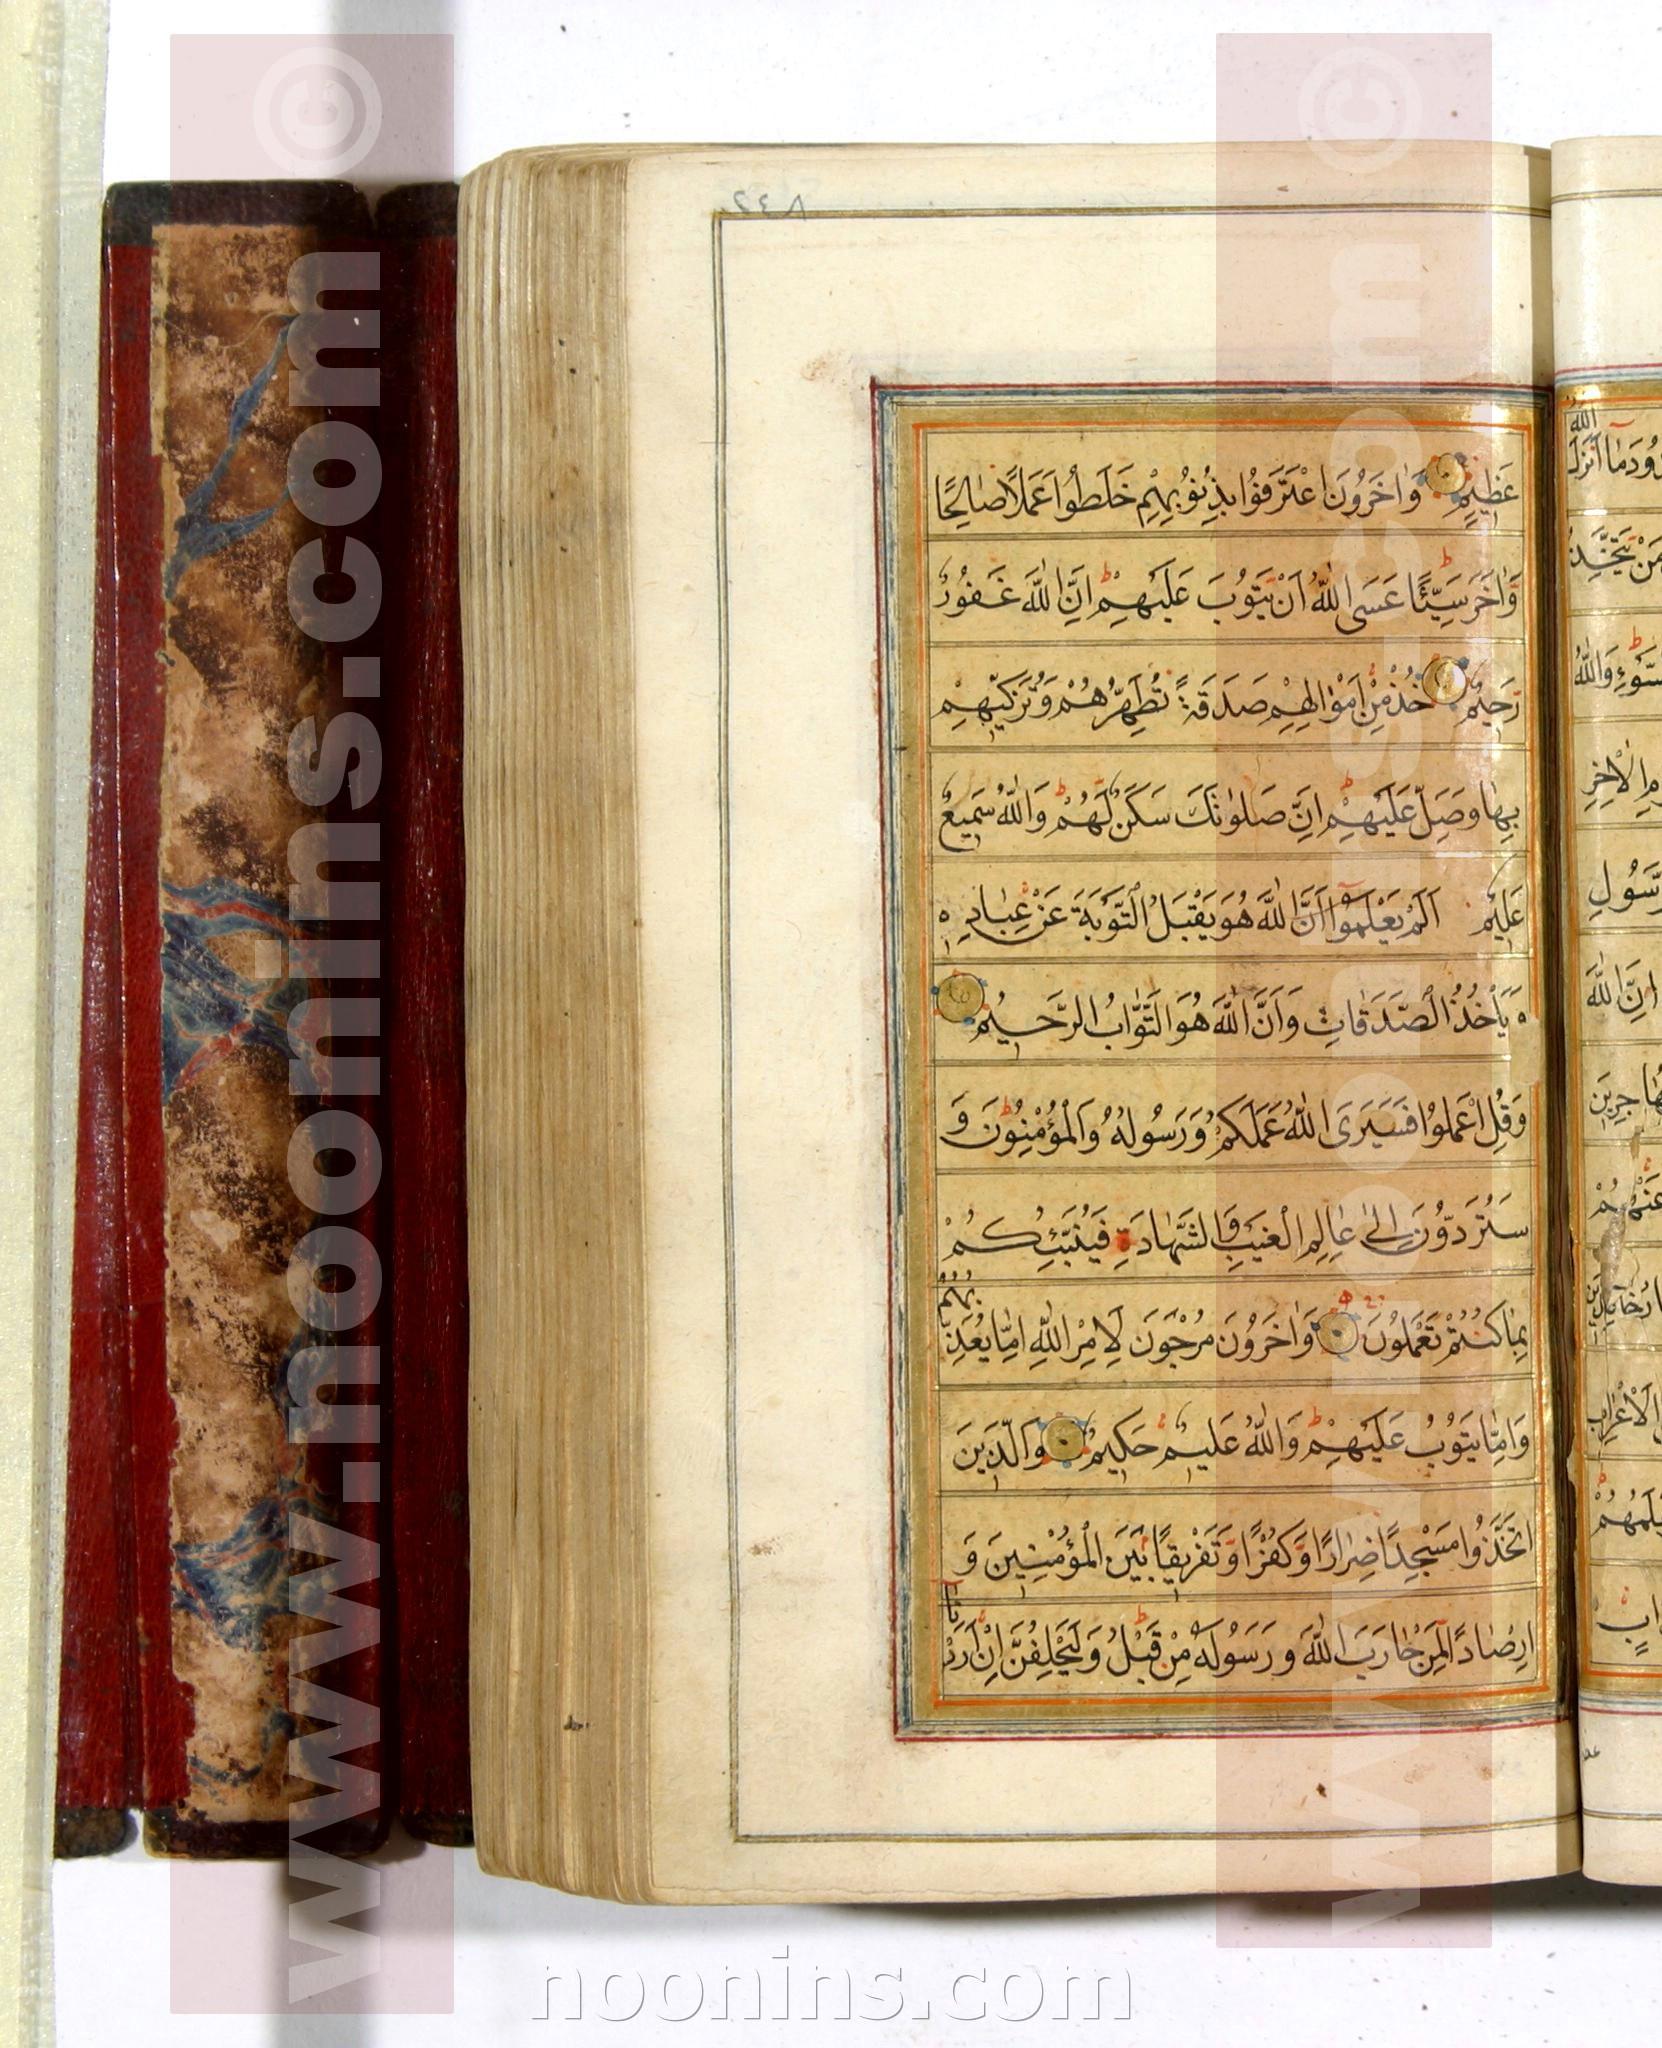 عَظِيمٍ وَاٰخَرُونَ اعْتَرَفُوا بِذُنُوبِهِمْ خَلَطُوا عَمَلًا صَالِحًا
وَاٰخَرَ سَيِّئًا عَسَى اللّٰهُ اَنْ يَتُوبَ عَلَيْهِمْ اِنَّ اللّٰهَ غَفُورٌ
رَحِيمٌ خُذْ مِنْ اَمْوَالِهِمْ صَدَقَةً تُطَهِّرُهُمْ وَتُزَكِّيهِمْ
بِهَا وَصَلِّ عَلَيْهِمْ اِنَّ صَلٰوتَكَ سَكَنٌ لَهُمْ وَاللّٰهُ سَمِيعٌ
عَلِيمٌ اَلَمْ يَعْلَمُوا اَنَّ اللّٰهَ هُوَ يَقْبَلُ التَّوْبَةَ عَنْ عِبَادِهِ
وَيَأْخُذُ الصَّدَقَاتِ وَاَنَّ اللّٰهَ هُوَ التَّوَّابُ الرَّحِيمُ
وَقُلِ اعْمَلُوا فَسَيَرَى اللّٰهُ عَمَلَكُمْ وَرَسُولُهُ وَالْمُؤْمِنُونَ وَ
سَتُرَدُّونَ اِلٰى عَالِمِ الْغَيْبِ وَالشَّهَادَةِ فَيُنَبِّئُكُمْ
بِمَا كُنْتُمْ تَعْمَلُونَ وَاٰخَرُونَ مُرْجَوْنَ لِاَمْرِ اللّٰهِ اِمَّا يُعَذِّبُهُمْ
وَاِمَّا يَتُوبُ عَلَيْهِمْ وَاللّٰهُ عَلِيمٌ حَكِيمٌ وَالَّذِينَ
اتَّخَذُوا مَسْجِدًا ضِرَارًا وَكُفْرًا وَتَفْرِيقًا بَيْنَ الْمُؤْمِنِينَ وَ
اِرْصَادًا لِمَنْ حَارَبَ اللّٰهَ وَرَسُولَهُ مِنْ قَبْلُ وَلَيَحْلِفُنَّ اِنْ اَرَدْنَا
www.noonins.com ©
www.noonins.com ©
noonins.com